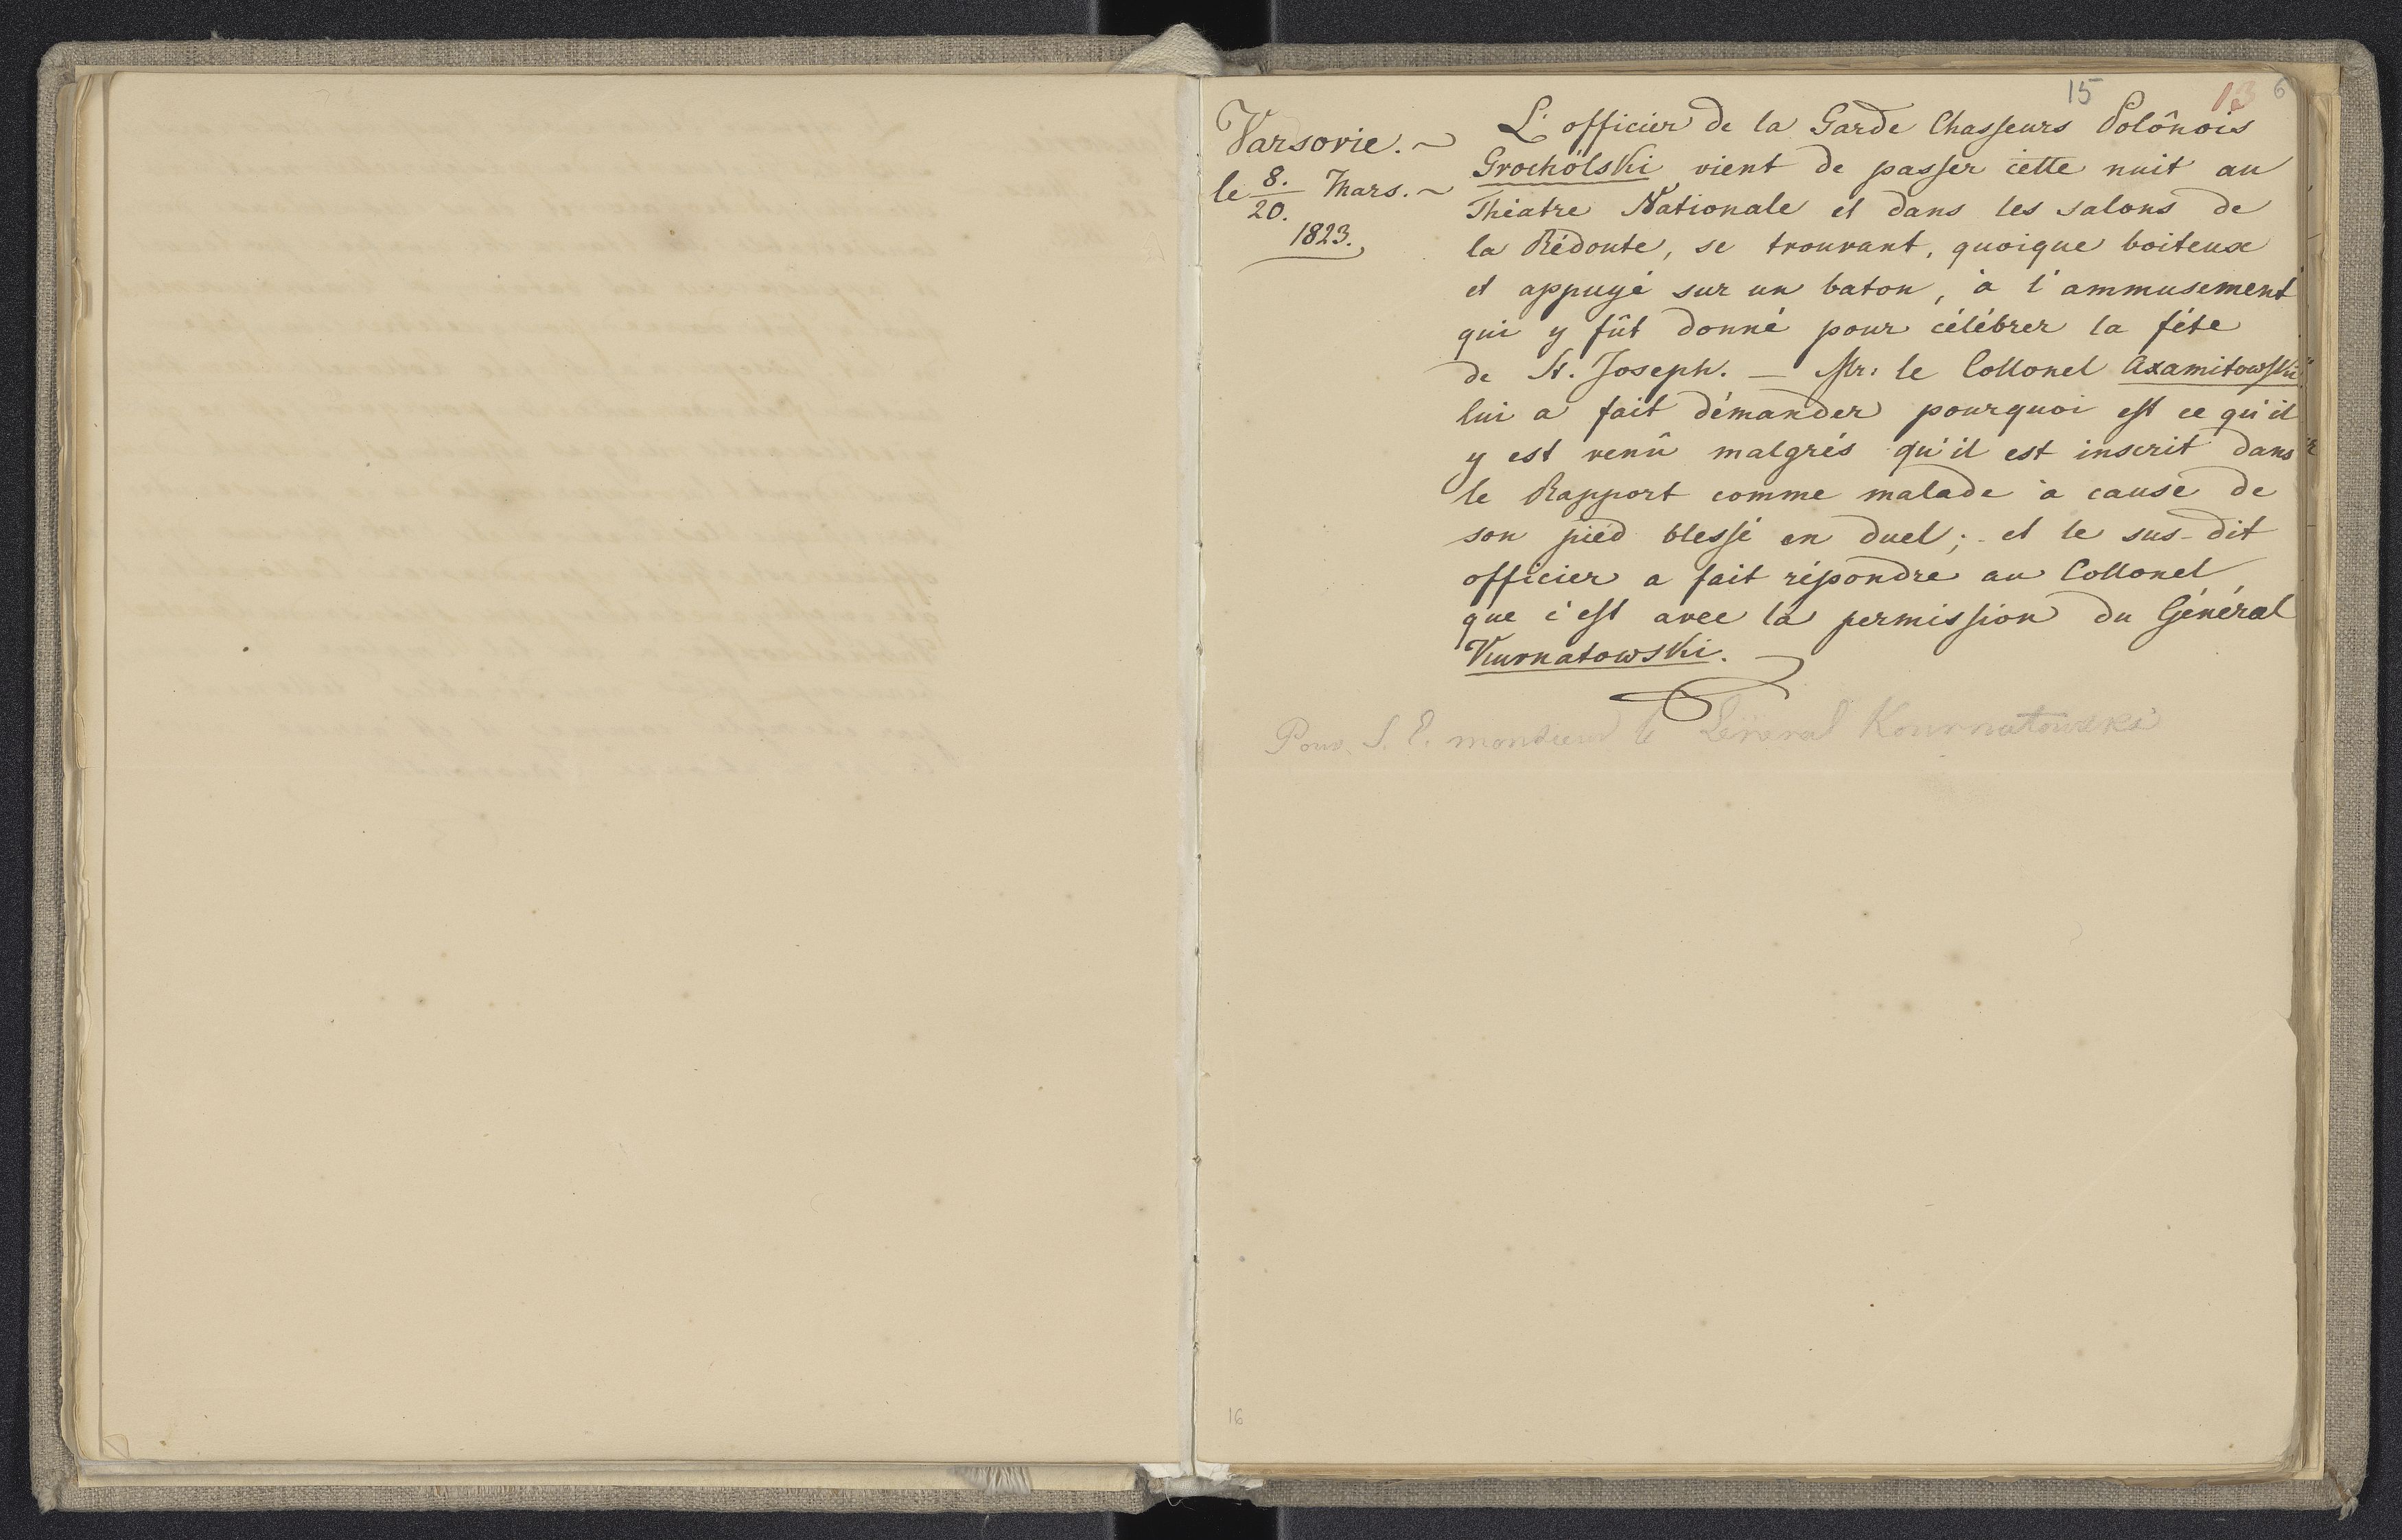 15 13 6
Varsovie. ~
le 8./20. Mars. ~
1823.
L'officier de la Garde Chasseurs Polônois
Grochólski vient de passer cette nuit au
Théatre Nationale et dans les salons de
la Rédoute, se trouvant, quoique boiteux
et appuyé sur un baton, à l'ammusement
qui y fût donné pour célébrer la féte
de St. Joseph. — Mr. le Collonel Axamitowski
lui a fait démander pourquoi est ce qu'il
y est venû malgrés qu'il est inscrit dans
le Rapport comme malade à cause de
son pied blessé en duel; - et le sus-dit
officier a fait répondre au Collonel
que c'est avec la permission du Général
Kurnatowski.
Pour S. E. monsieur le Général Kournatowski
16